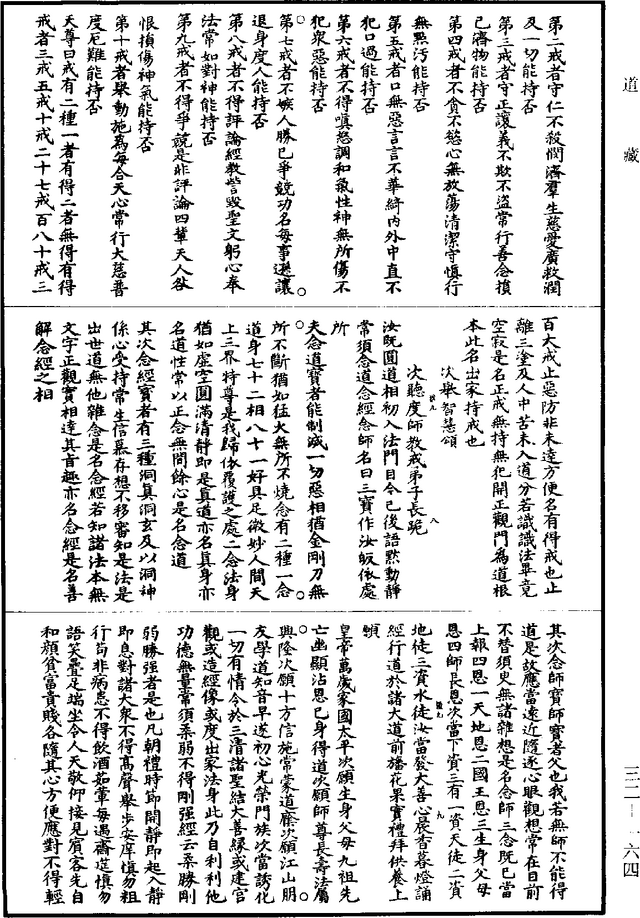 道藏
第二戒者守仁不殺憫濟羣生慈愛廣救潤
及一切能持否
第三戒者守正讓義不欺不盜常行善念損
已濟物能持否
第四戒者不貪不慾心無放蕩清潔守慎行
無點污能持否
第五戒者口無惡言言不華綺內外中直不
犯口過能持否
第六戒者不得嗔怒調和氣性神無所傷不
犯衆惡能持否
第七戒者不嫉人勝已爭競功名每事遜讓
退身度人能持否
第八戒者不得評論經教訾毀聖文躬心奉
法常如對神能持否
第九戒者不得爭競是非評論四輩天人咎
恨損傷神氣能持否
第十戒者舉動施爲每合天心常行大慈普
度厄難能持否
天尊曰戒有二種一者有得二者無得有得
戒者三戒五戒十戒二十七戒百八十戒三
百大戒止惡防非未達方便名有得戒也止
離三塗及人中苦未入道分若識識法畢竟
空寂是名正戒無持無犯開正觀門爲道根
本此名出家持戒也
次舉智慧頌
次聽度師教戒弟子長跪
汝既圓道相初入法門目今已後語默動靜
常須念道念經念師名曰三寶作汝皈依處
所
夫念道寶者能制滅一切惡相猶金剛刀無
所不斷猶如猛火無所不燒念有二種一念
道身七十二相八十一好具足微妙人間天
上三界特尊是我歸依覆護之處二念法身
猶如虛空圓滿清靜即是真道亦名真身亦
名道性常以正念無間餘心是名念道
其次念經寶者有三種洞真洞玄及以洞神
係心受持常生信慕存想不移審知是法是
出世道無他雜念是名念經若知諸法本無
文字正觀實相達其旨趣亦名念經是名善
解念經之相
其次念師寶師寶者父也我若無師不能得
道是故應當遠近隨逐心眼觀想常在目前
不替須臾無諸雜想是名念師三念既已當
上報四恩一天地恩二國王恩三生身父母
恩四師長恩次當下資三有一資天徒二資
地徒三資水徒汝當發大善心晨香暮燈誦
經行道於諸大道前旛花果實禮拜供養上
願
皇帝萬歲家國太平次願生身父母九祖先
亡出顯沾恩已身得道次願師尊長壽法屬
興隆次願十方信施常蒙道廕次願江山朋
友學道知音早遂初心光榮門族次當誘化
一切有情令於三清諸聖結大善緣或建宮
觀或造經像或度出家法身此乃自利利他
功德無量常須柔弱不得剛強經云柔勝剛
弱勝強者是也凡朝禮時節聞靜即起入靜
即息對諸大衆不得高聲舉步安庠慎勿粗
行苟非病患不得飲酒茹葷每遇齋筵慎勿
語笑疊足端坐令人天敬仰接見賓客先自
和顏貧富貴賤各隨其心方便應對不得輕
三二—一六四